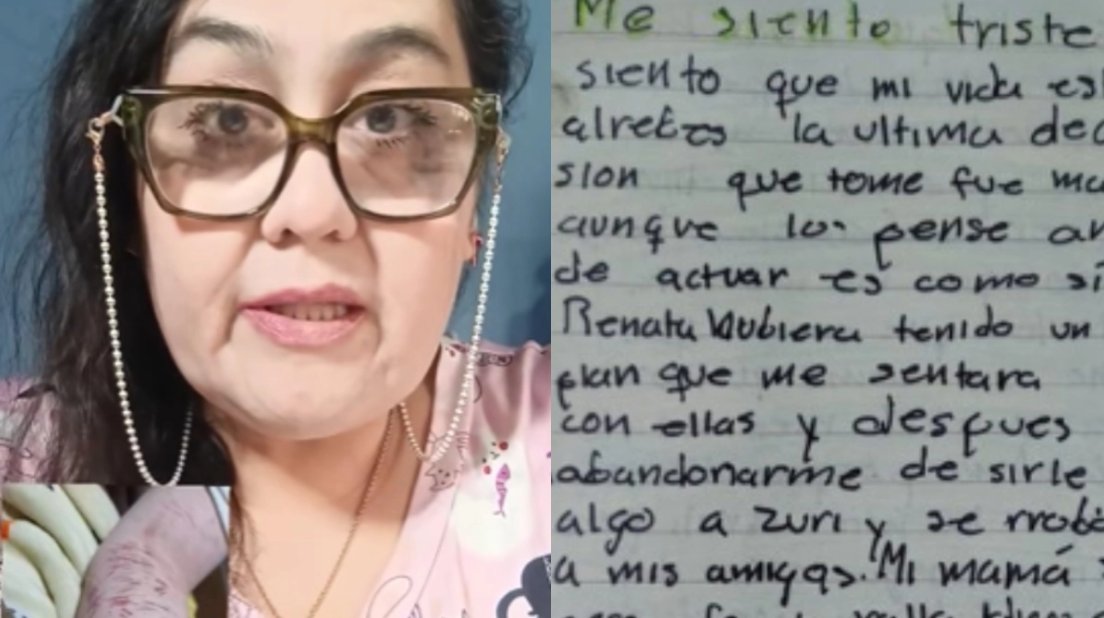 Me siento triste
siento que mi vida es
alrebes la ultima dec
sion que tome fue ma
aunque lo pense an
de actuar es como si
Renata hubiera tenido un
plan que me sentara
con ellas y despues
abandonarme de sirle
algo a zuri y se rrobo
a mis amigas. Mi mamá